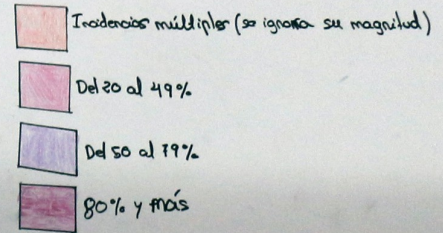 Incidencias múltiples (se ignora su magnitud)
Del 20 al 49%
Del 50 al 79%
80% y más